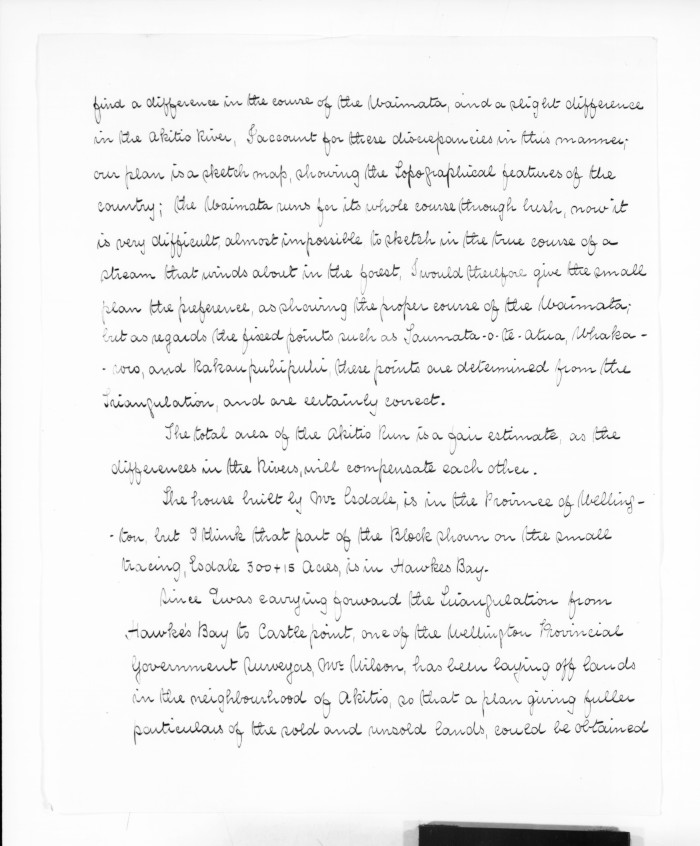 find a difference in the course of the Waimata, and a slight difference
in the Akitio River, I account for these discrepancies in this manner;
our plan is a sketch map, showing the Topographical features of the
country; the Waimata runs for its whole course through bush, now it
is very difficult, almost impossible to sketch in the true course of a
stream that winds about in the forest, I would therefore give the small
plan the preference, as showing the proper course of the Waimata;
but as regards the fixed points such as Taumata-o-te-Atua, Whaka-
-roro, and Kakaupuhipuhi, these points are determined from the
Triangulation, and are certainly correct.
The total area of the Akitio Run is a fair estimate, as the
differences in the Rivers, will compensate each other.
The house built by Mr. Esdale, is in the Province of Welling-
-ton, but I think that part of the Block shown on the small
tracing, Esdale 300+15 Acres, is in Hawkes Bay.
Since I was carrying forward the Triangulation from
Hawke's Bay to Castlepoint, one of the Wellington Provincial
Government Surveyors, Mr. Wilson, has been laying off lands
in the neighbourhood of Akitio, so that a plan giving fuller
particulars of the sold and unsold lands, could be obtained